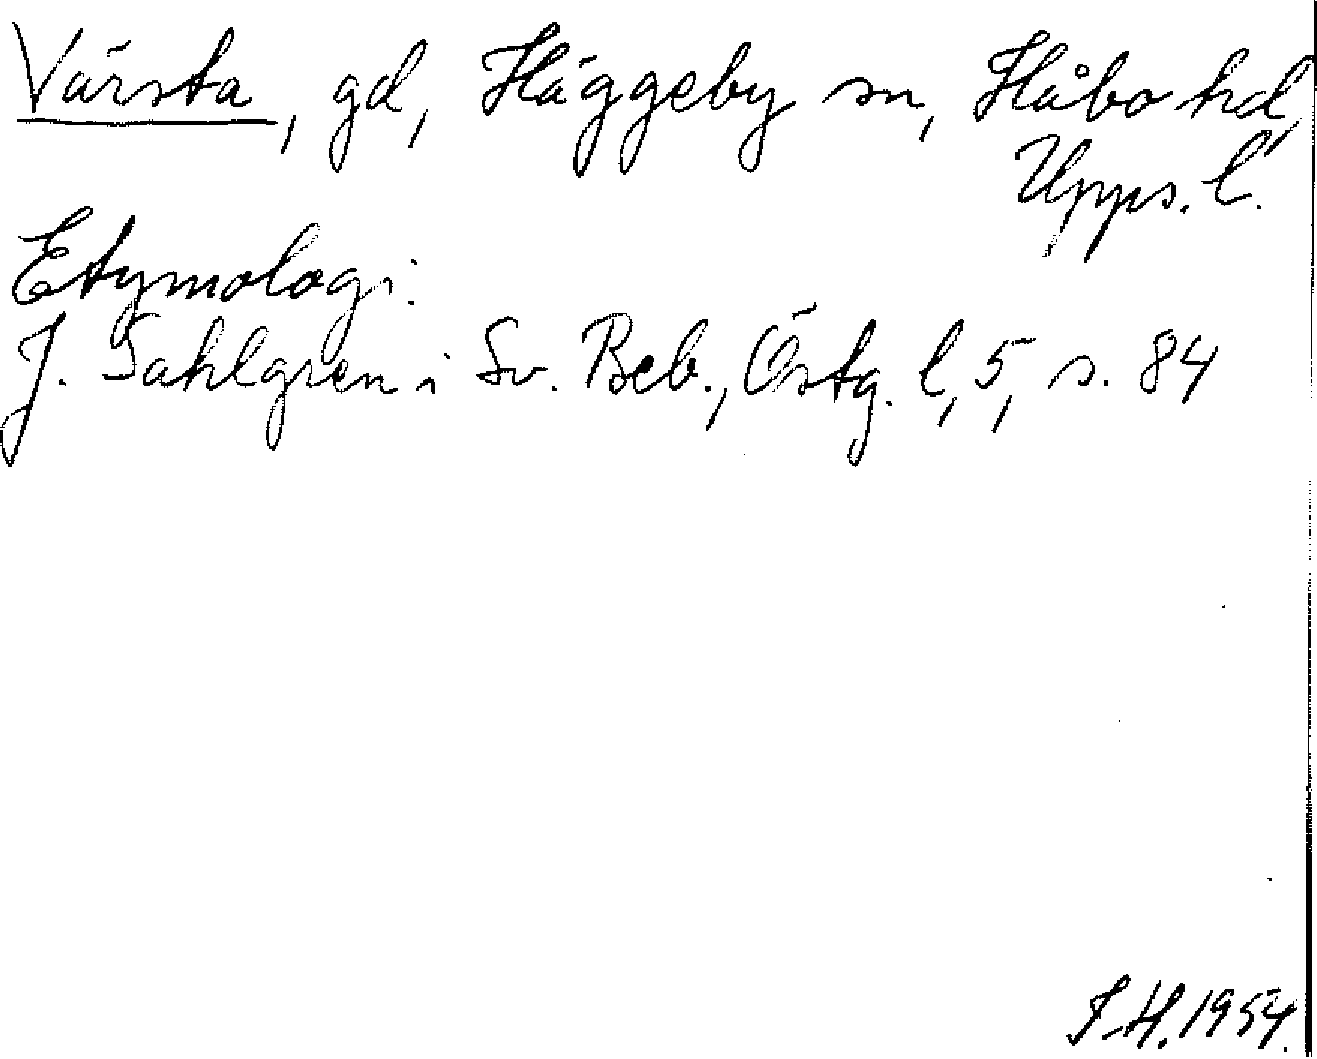 Värsta, gd, Häggeby sn, Håbo hd,
Upps. l.
Etymologi:
J. Sahlgren i Sv. Beb., Östg. l, 5, s. 84
S.H. 1954.